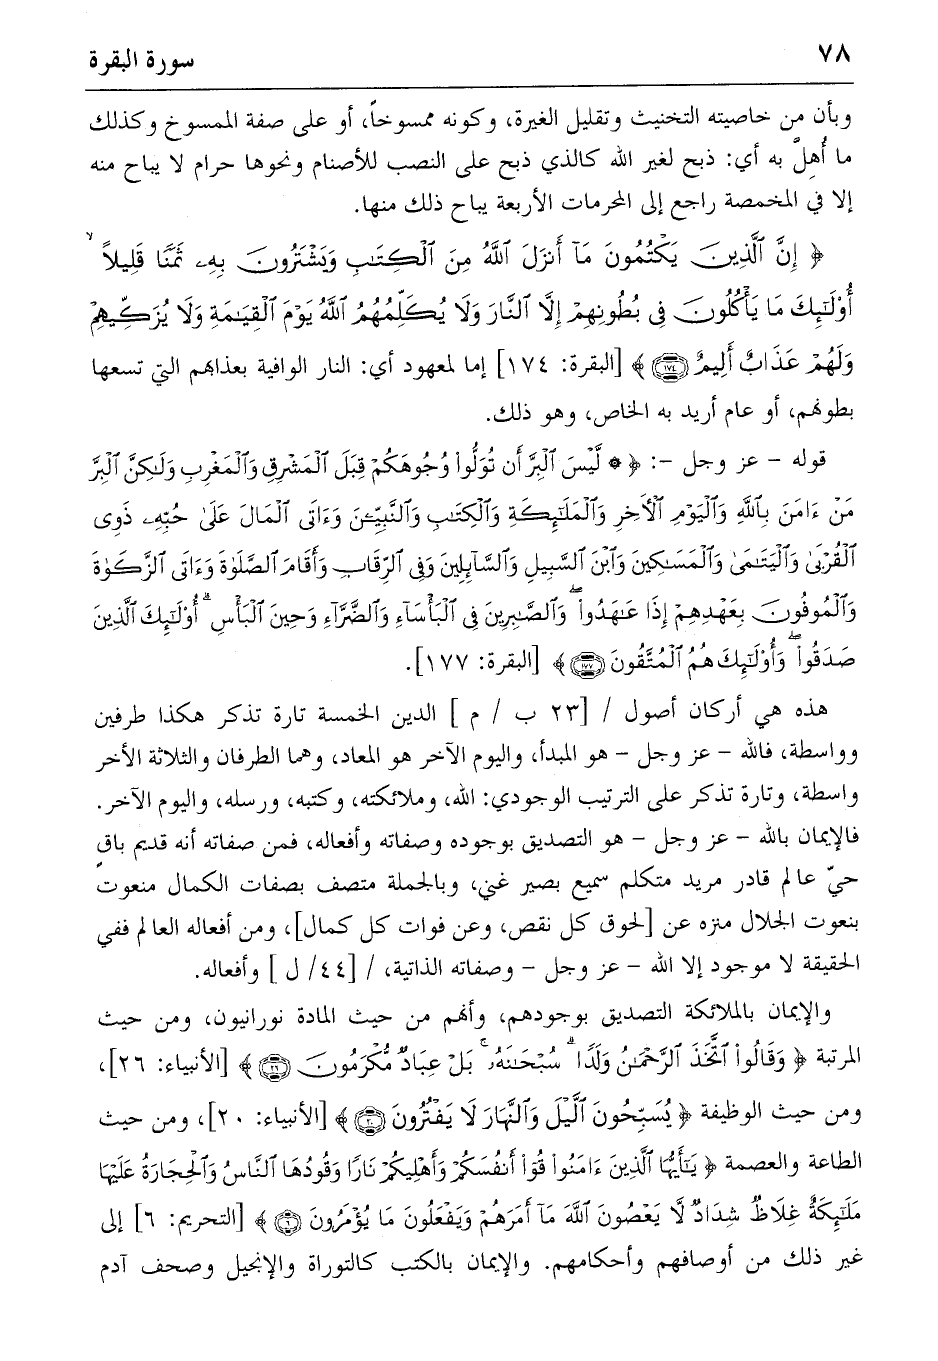 ٧٨
سورة البقرة
وبأن من خاصيته التخنيث وتقليل الغيرة، وكونه ممسوخاً، أو على صفة الممسوخ وكذلك
ما أُهِلَّ به أي: ذبح لغير الله كالذي ذبح على النصب للأصنام ونحوها حرام لا يباح منه
إلا في المخمصة راجع إلى المحرمات الأربعة يباح ذلك منها.
﴿ إِنَّ ٱلَّذِينَ يَكْتُمُونَ مَآ أَنزَلَ ٱللَّهُ مِنَ ٱلْكِتَٰبِ وَيَشْتَرُونَ بِهِۦ ثَمَنًا قَلِيلاً ۙ
أُوْلَٰٓئِكَ مَا يَأْكُلُونَ فِى بُطُونِهِمْ إِلَّا ٱلنَّارَ وَلَا يُكَلِّمُهُمُ ٱللَّهُ يَوْمَ ٱلْقِيَٰمَةِ وَلَا يُزَكِّيهِمْ
وَلَهُمْ عَذَابٌ أَلِيمٌ ﴿١٧٤﴾ ﴾ [البقرة: ١٧٤] إما لمعهود أي: النار الوافية بعذابهم التي تسعها
بطونهم، أو عام أريد به الخاص، وهو ذلك.
قوله - عز وجل -: ﴿ ۞ لَّيْسَ ٱلْبِرَّ أَن تُوَلُّوا۟ وُجُوهَكُمْ قِبَلَ ٱلْمَشْرِقِ وَٱلْمَغْرِبِ وَلَٰكِنَّ ٱلْبِرَّ
مَنْ ءَامَنَ بِٱللَّهِ وَٱلْيَوْمِ ٱلْأَخِرِ وَٱلْمَلَٰٓئِكَةِ وَٱلْكِتَٰبِ وَٱلنَّبِيِّۦنَ وَءَاتَى ٱلْمَالَ عَلَىٰ حُبِّهِۦ ذَوِى
ٱلْقُرْبَىٰ وَٱلْيَتَٰمَىٰ وَٱلْمَسَٰكِينَ وَٱبْنَ ٱلسَّبِيلِ وَٱلسَّآئِلِينَ وَفِى ٱلرِّقَابِ وَأَقَامَ ٱلصَّلَوٰةَ وَءَاتَى ٱلزَّكَوٰةَ
وَٱلْمُوفُونَ بِعَهْدِهِمْ إِذَا عَٰهَدُوا۟ ۖ وَٱلصَّٰبِرِينَ فِى ٱلْبَأْسَآءِ وَٱلضَّرَّآءِ وَحِينَ ٱلْبَأْسِ ۗ أُوْلَٰٓئِكَ ٱلَّذِينَ
صَدَقُوا۟ ۖ وَأُوْلَٰٓئِكَ هُمُ ٱلْمُتَّقُونَ ﴿١٧٧﴾ ﴾ [البقرة: ١٧٧].
هذه هي أركان أصول / [٢٣ ب / م ] الدين الخمسة تارة تذكر هكذا طرفين
وواسطة، فالله - عز وجل - هو المبدأ، واليوم الآخر هو المعاد، وهما الطرفان والثلاثة الأخر
واسطة، وتارة تذكر على الترتيب الوجودي: الله، وملائكته، وكتبه، ورسله، واليوم الآخر.
فالإيمان بالله - عز وجل - هو التصديق بوجوده وصفاته وأفعاله، فمن صفاته أنه قديم باقٍ
حيّ عالم قادر مريد متكلم سميع بصير غني، وبالجملة متصف بصفات الكمال منعوت
بنعوت الجلال منزه عن [لحوق كل نقص، وعن فوات كل كمال]، ومن أفعاله العالم ففي
الحقيقة لا موجود إلا الله - عز وجل - وصفاته الذاتية، / [٤٤/ ل ] وأفعاله.
والإيمان بالملائكة التصديق بوجودهم، وأنهم من حيث المادة نورانيون، ومن حيث
المرتبة ﴿ وَقَالُوا۟ ٱتَّخَذَ ٱلرَّحْمَٰنُ وَلَدًا ۗ سُبْحَٰنَهُۥ ۚ بَلْ عِبَادٌ مُّكْرَمُونَ ﴿٢٦﴾ ﴾ [الأنبياء: ٢٦]،
ومن حيث الوظيفة ﴿ يُسَبِّحُونَ ٱلَّيْلَ وَٱلنَّهَارَ لَا يَفْتُرُونَ ﴿٢٠﴾ ﴾ [الأنبياء: ٢٠]، ومن حيث
الطاعة والعصمة ﴿ يَٰٓأَيُّهَا ٱلَّذِينَ ءَامَنُوا۟ قُوٓا۟ أَنفُسَكُمْ وَأَهْلِيكُمْ نَارًا وَقُودُهَا ٱلنَّاسُ وَٱلْحِجَارَةُ عَلَيْهَا
مَلَٰٓئِكَةٌ غِلَاظٌ شِدَادٌ لَّا يَعْصُونَ ٱللَّهَ مَآ أَمَرَهُمْ وَيَفْعَلُونَ مَا يُؤْمَرُونَ ﴿٦﴾ ﴾ [التحريم: ٦] إلى
غير ذلك من أوصافهم وأحكامهم. والإيمان بالكتب كالتوراة والإنجيل وصحف آدم